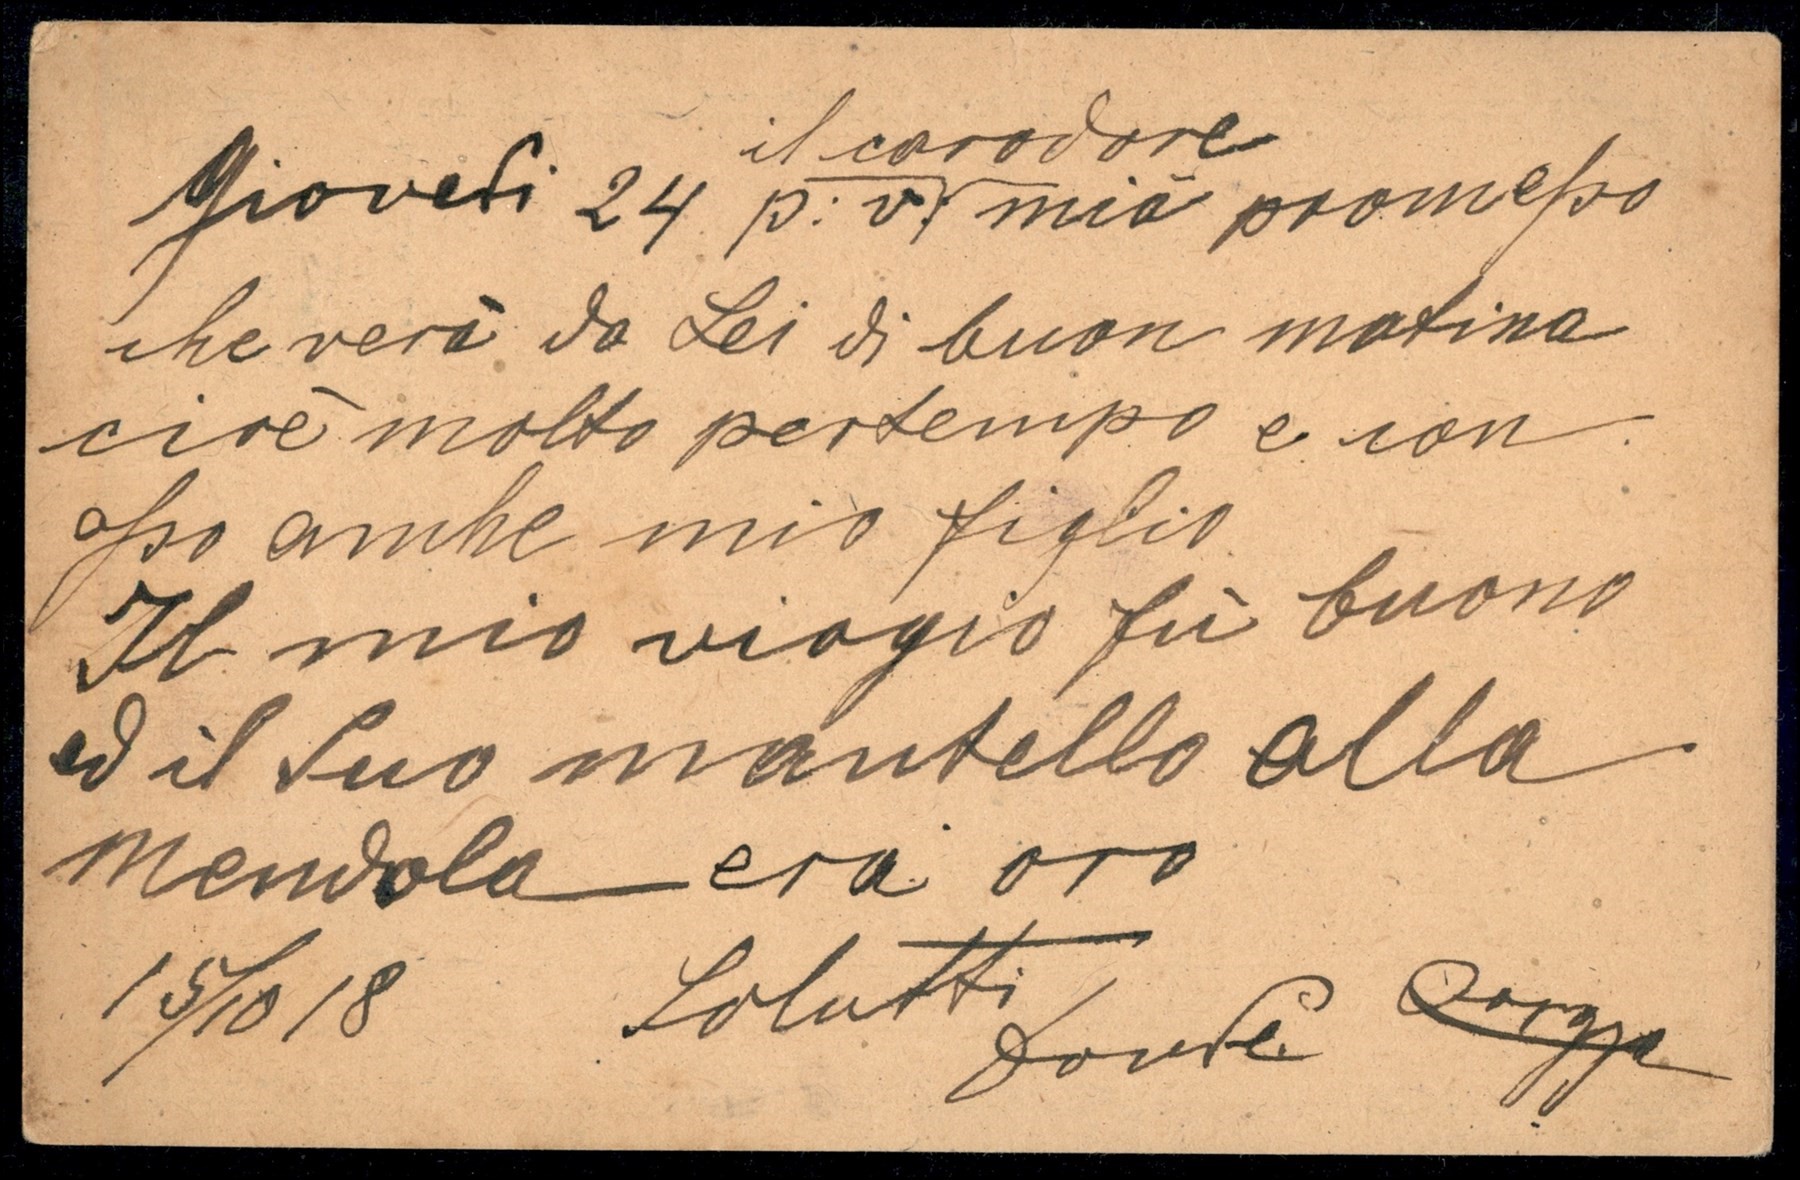 il caradore
Giovedi 24 p: v: mia promesso
che verà da Lei di buon matina
cioè molto pertempo e con
esso anche mio figlio
Il mio viagio fù buono
ed il Suo mantello alla
Mendola era oro
15/10 18 Solutti